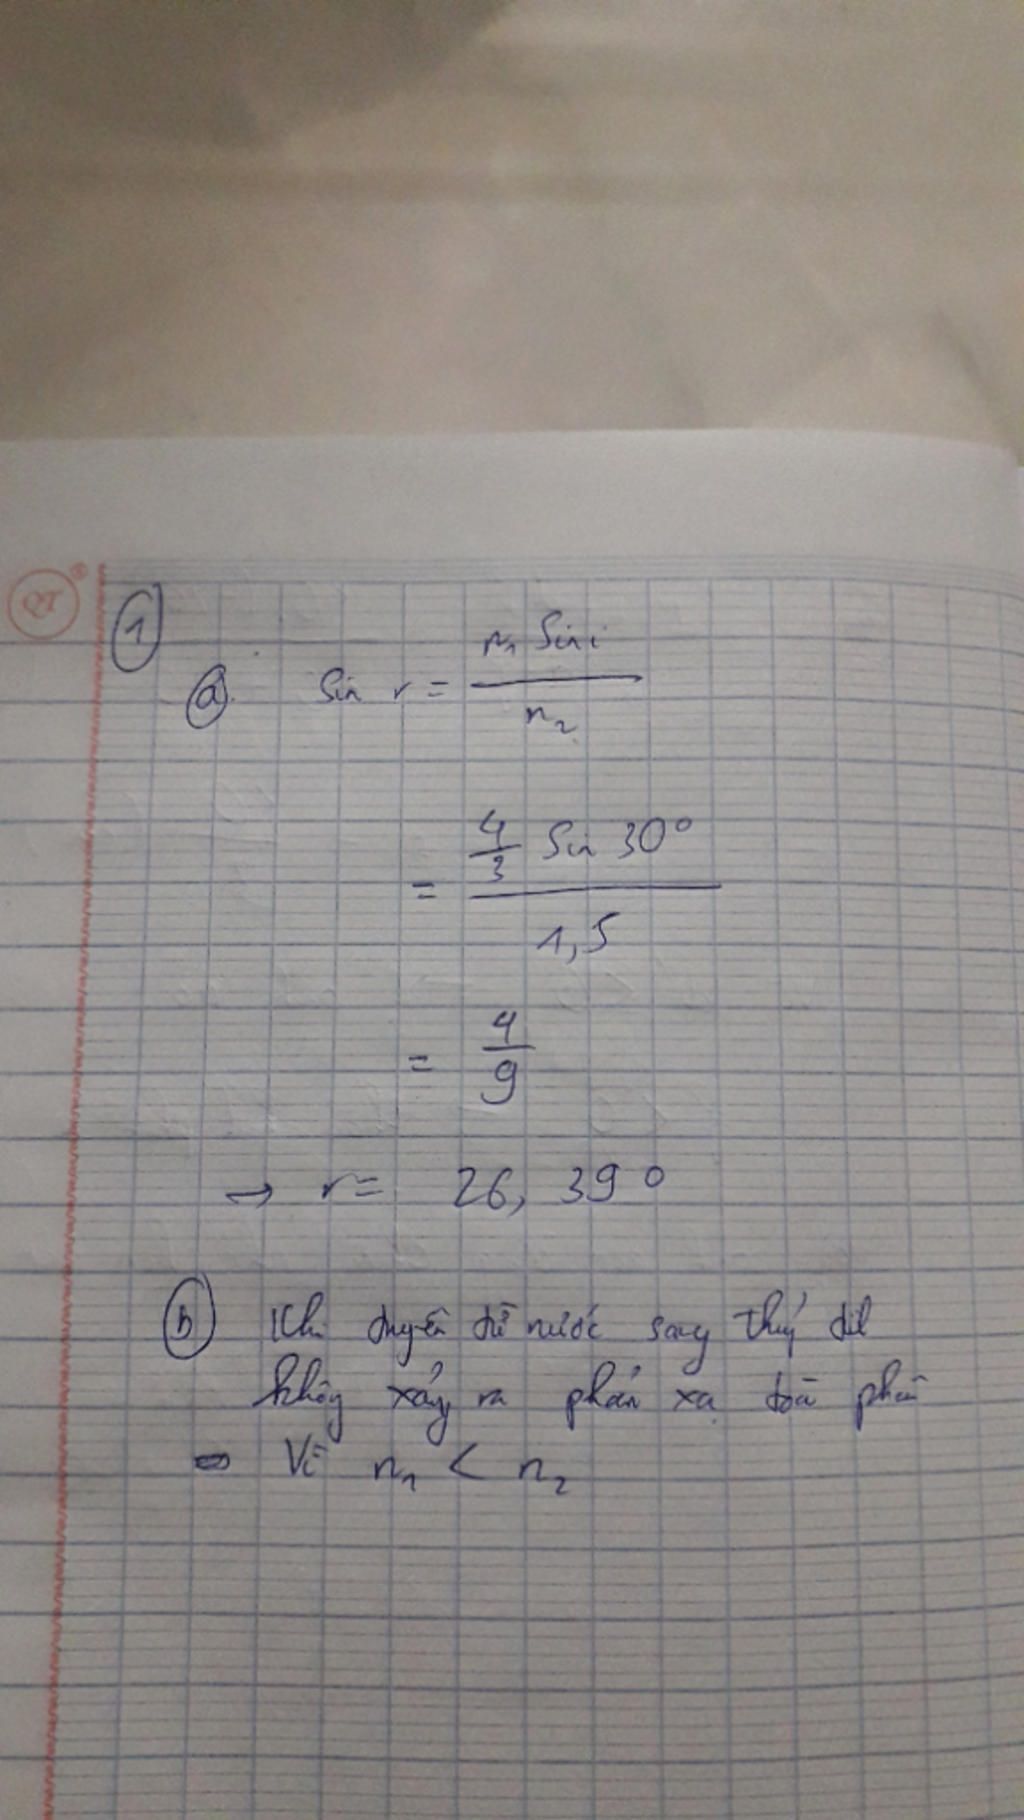 1
a. Sin r = n₁ Sin i / n₂
= 4/3 Sin 30° / 1,5
= 4/9
→ r = 26,39°
b Khi truyền từ nước sang thủy
không xảy ra phản xạ toàn phần
Vì n₁ < n₂